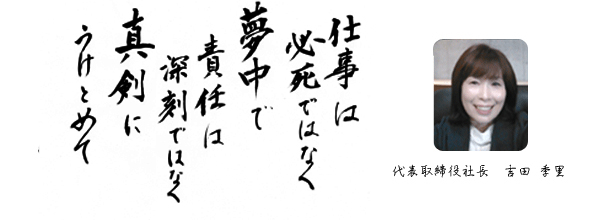 仕事は
必死ではなく
夢中で
責任は
深刻ではなく
真剣に
うけとめて
代表取締役社長 吉田 季里